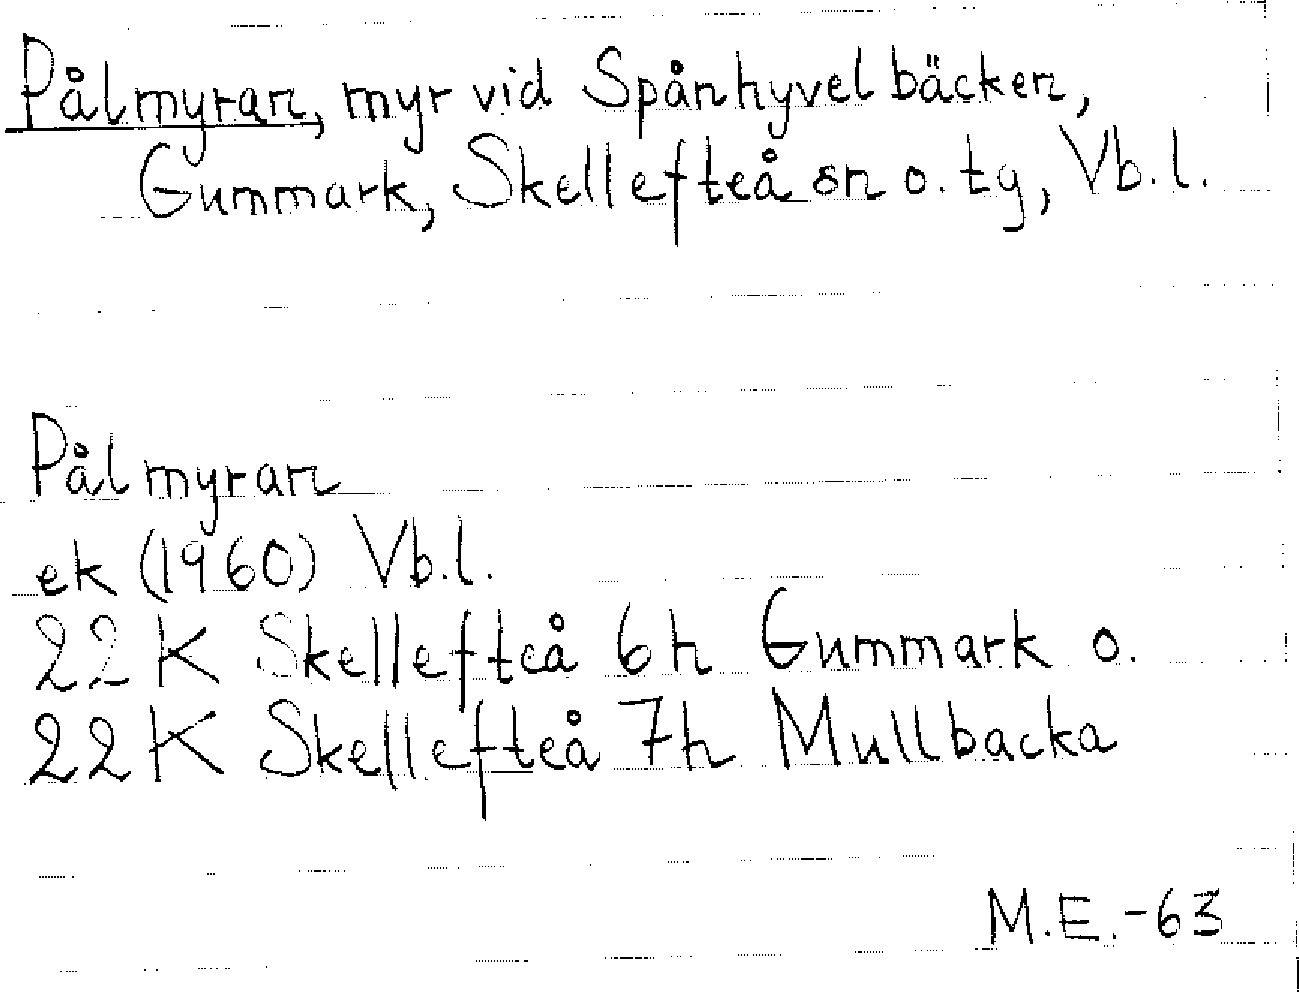 Pålmyran, myr vid Spånhyvelbäcken,
Gummark, Skellefteå sn o. tg, Vb.l.
Pålmyran
ek (1960) Vb.l.
22 K Skellefteå 6h Gummark o.
22 K Skellefteå 7h Mullbacka
M.E.-63